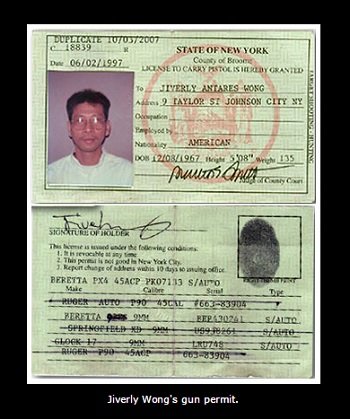 DUPLICATE 10/03/2007
C 18839 R
STATE OF NEW YORK
County of Broome
Date 06/02/1997
LICENSE TO CARRY PISTOL IS HEREBY GRANTED
To JIVERLY ANTARES WONG
Address 9 TAYLOR ST JOHNSON CITY NY
Occupation
Employed by
Nationality AMERICAN
DOB 12/08/1967 Height 5'08" Weight 135
Judge of County Court
TARGET SHOOTING/HUNTING
SIGNATURE OF HOLDER
This license is issued under the following conditions:
1. It is revocable at any time
2. This permit is not good in New York City.
3. Report change of address within 10 days to issuing office.
RIGHT THUMB PRINT
BERETTA PX4 45ACP PK07133 S/AUTO
Make Calibre Serial Type
RUGER AUTO P90 45CAL #663-83904
BERETTA 9MM BER430761 S/AUTO
SPRINGFIELD XD 9MM US938261 S/AUTO
GLOCK 17 9MM LRU748 S/AUTO
RUGER P90 45ACP 663-83904
Jiverly Wong's gun permit.